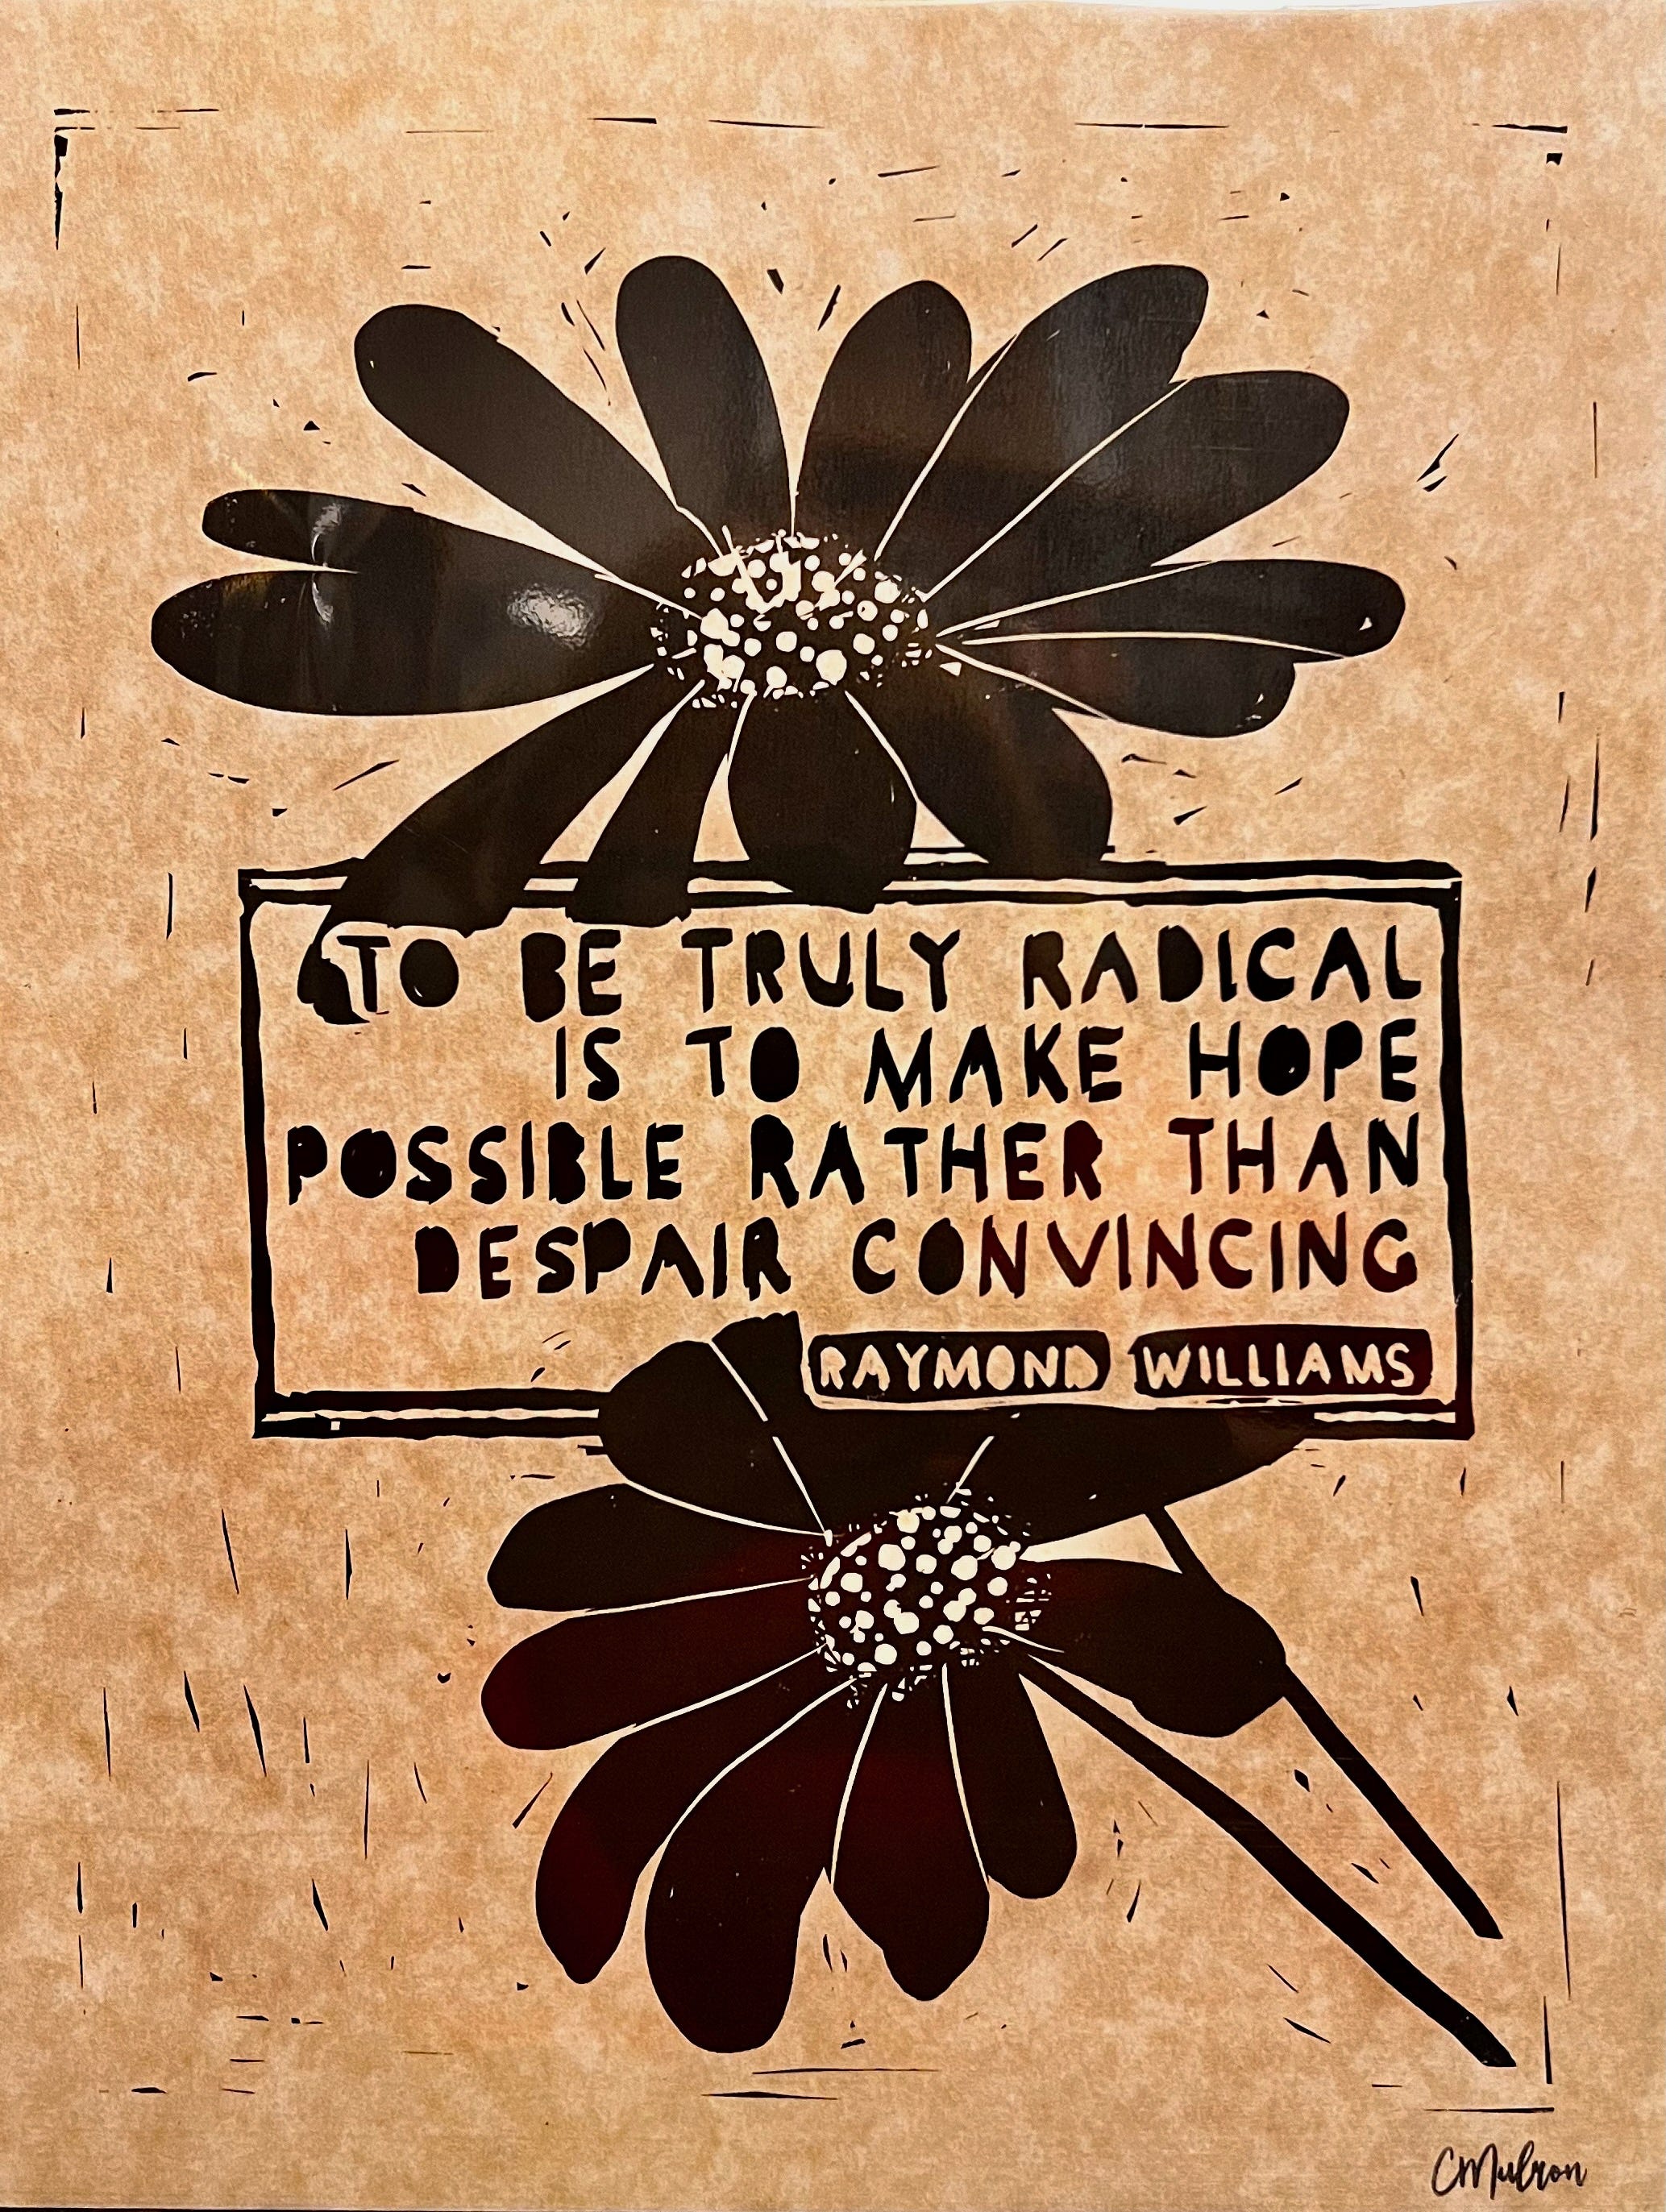 TO BE TRULY RADICAL
IS TO MAKE HOPE
POSSIBLE RATHER THAN
DESPAIR CONVINCING
RAYMOND WILLIAMS
CMulron